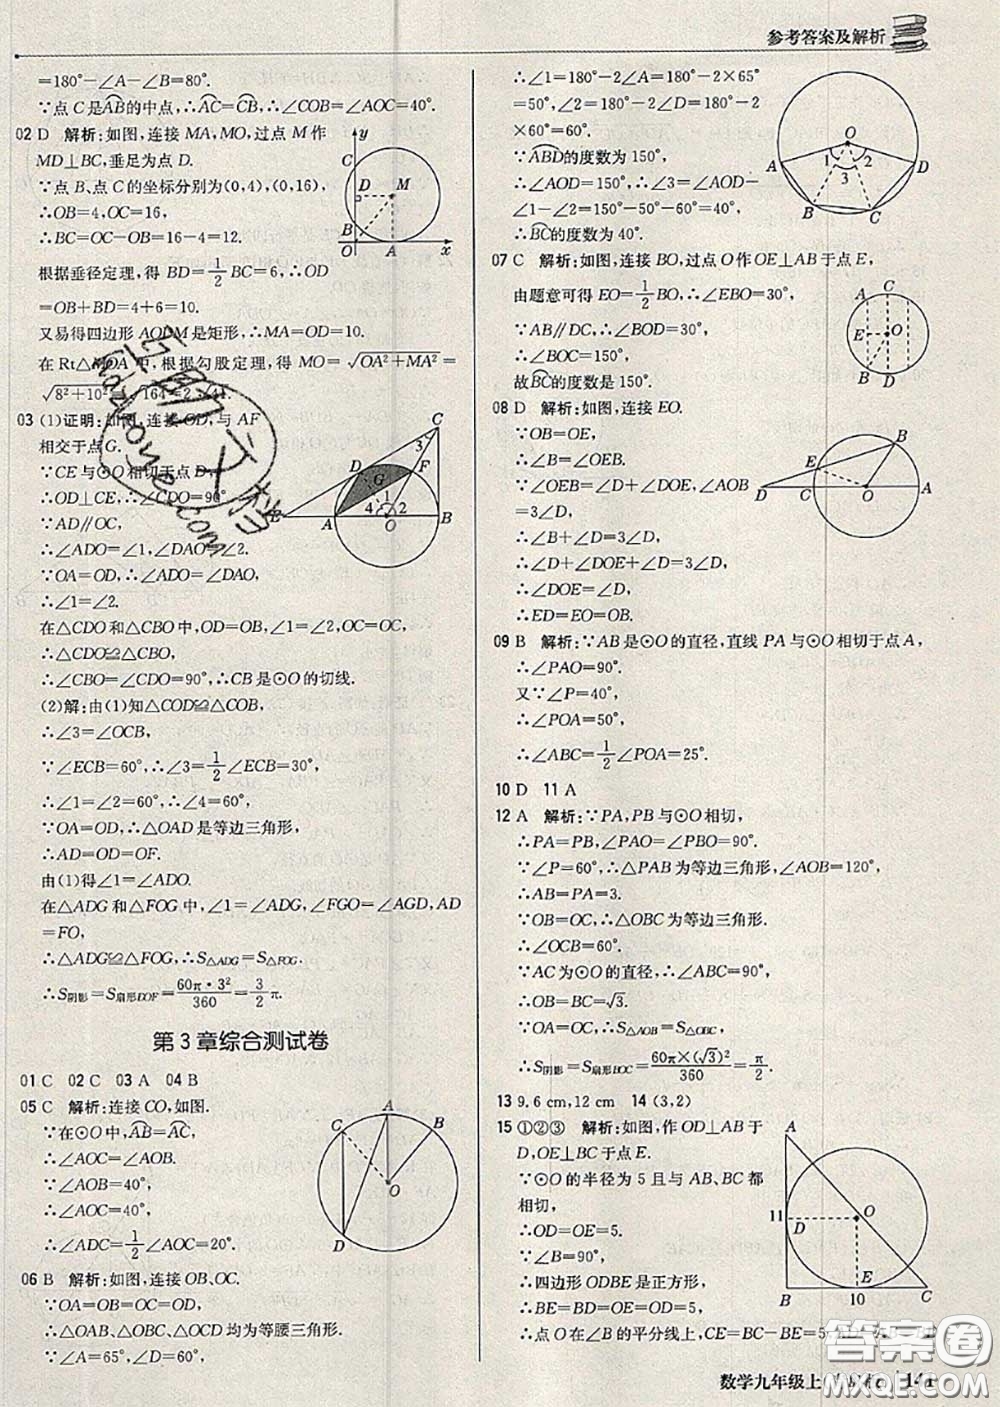 参考答案及解析
=180°-∠A-∠B=80°.
∵点C是AB的中点,∴AC=CB,∴∠COB=∠AOC=40°.
02 D 解析:如图,连接MA,MO,过点M作
MD⊥BC,垂足为点D.
∵点B、点C的坐标分别为(0,4),(0,16),
∴OB=4,OC=16,
∴BC=OC-OB=16-4=12.
根据垂径定理,得BD=1/2BC=6,∴OD
=OB+BD=4+6=10.
又易得四边形AODM是矩形,∴MA=OD=10.
在Rt△MOA中,根据勾股定理,得MO=√(OA²+MA²)=
√(8²+10²)=√164=2√41.
y
C
D
M
B
O
A
x
03 (1)证明:如图,连接OD,与AF
相交于点G.
∵CE与⊙O相切于点D,
∴OD⊥CE,∴∠CDO=90°.
∵AD∥OC,
∴∠ADO=∠1,∠DAO=∠2.
∵OA=OD,∴∠ADO=∠DAO,
∴∠1=∠2.
在△CDO和△CBO中,OD=OB,∠1=∠2,OC=OC,
∴△CDO≌△CBO,
∴∠CBO=∠CDO=90°,∴CB是⊙O的切线.
(2)解:由(1)知△COD≌△COB,
∴∠3=∠OCB,
∵∠ECB=60°,∴∠3=1/2∠ECB=30°,
∴∠1=∠2=60°,∴∠4=60°.
∵OA=OD,∴△OAD是等边三角形,
∴AD=OD=OF.
由(1)得∠1=∠ADO.
在△ADG和△FOG中,∠1=∠ADG,∠FGO=∠AGD,AD
=FO,
∴△ADG≌△FOG,∴S△ADG=S△FOG.
∴S阴影=S扇形DOF=60π·3²/360=3/2π.
C
3
D
F
G
1
4
2
E
A
O
B
第3章综合测试卷
01 C 02 C 03 A 04 B
05 C 解析:连接CO,如图.
∵在⊙O中,AB=AC,
∴∠AOC=∠AOB.
∵∠AOB=40°,
∴∠AOC=40°,
∴∠ADC=1/2∠AOC=20°.
A
C
B
O
D
06 B 解析:如图,连接OB,OC.
∵OA=OB=OC=OD,
∴△OAB、△OBC、△OCD均为等腰三角形.
∵∠A=65°,∠D=60°,
∴∠1=180°-2∠A=180°-2×65°
=50°,∠2=180°-2∠D=180°-2
×60°=60°.
∵ABD的度数为150°,
∴∠AOD=150°,∴∠3=∠AOD
-∠1-∠2=150°-50°-60°=40°.
∴BC的度数为40°.
O
A
1
2
D
3
B
C
07 C 解析:如图,连接BO,过点O作OE⊥AB于点E,
由题意可得EO=1/2BO,∴∠EBO=30°,
∵AB∥DC,∴∠BOD=30°,
∴∠BOC=150°,
故BC的度数是150°.
A
C
E
O
B
D
08 D 解析:如图,连接EO.
∵OB=OE,
∴∠B=∠OEB.
∵∠OEB=∠D+∠DOE,∠AOB
=3∠D,
∴∠B+∠D=3∠D,
∴∠D+∠DOE+∠D=3∠D,
∴∠DOE=∠D,
∴ED=EO=OB.
B
E
D
O
A
09 B 解析:∵AB是⊙O的直径,直线PA与⊙O相切于点A,
∴∠PAO=90°.
又∵∠P=40°,
∴∠POA=50°,
∴∠ABC=1/2∠POA=25°.
10 D 11 A
12 A 解析:∵PA,PB与⊙O相切,
∴PA=PB,∠PAO=∠PBO=90°.
∵∠P=60°,∴△PAB为等边三角形,∠AOB=120°,
∴AB=PA=3.
∵OB=OC,∴△OBC为等边三角形.
∴∠OCB=60°.
∵AC为⊙O的直径,∴∠ABC=90°.
∴OB=BC=√3.
∵OA=OC,∴S△AOB=S△OBC,
∴S阴影=S扇形BOC=60π×(√3)²/360=π/2
13 9.6 cm,12 cm 14 (3,2)
15 ①②③ 解析:如图,作OD⊥AB于
D,OE⊥BC于点E.
∵⊙O的半径为5且与AB、BC都
相切,
∴OD=OE=5.
∵∠B=90°,
∴四边形ODBE是正方形,
∴BE=BD=OE=OD=5,
∴点O在∠B的平分线上,CE=BC-BE=5
A
11
D
O
E
B
10
C
数学九年级上
141
答案圈